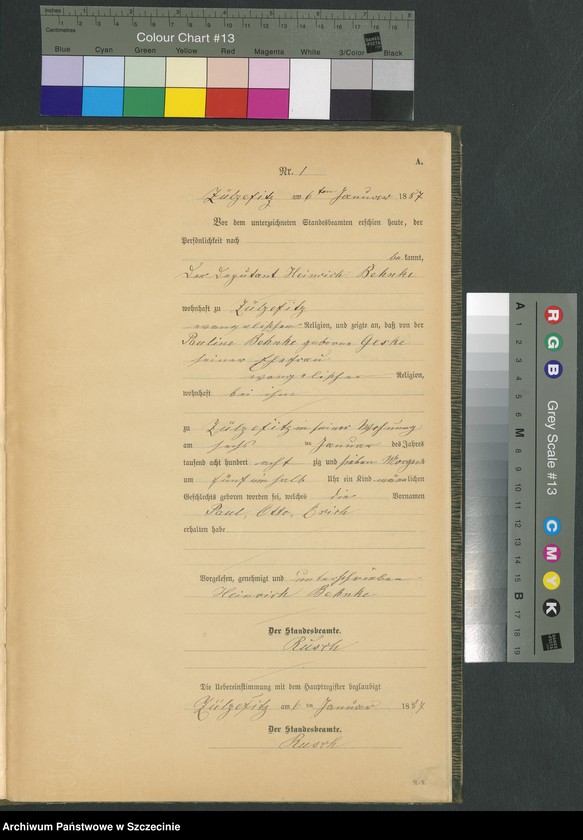 Inches
Centimetres
Colour Chart #13
Blue Cyan Green Yellow Red Magenta White 3/Color Black
A.
Nr. 1
Zülzefitz am 6ten Januar 1887
Vor dem unterzeichneten Standesbeamten erschien heute, der
Persönlichkeit nach
bekannt,
Der Deputant Heinrich Behnke
wohnhaft zu Zülzefitz
evangelischer Religion, und zeigte an, daß von der
Pauline Behnke geborene Geske
seiner Ehefrau
evangelischer Religion,
wohnhaft bei ihm
zu Zülzefitz in seiner Wohnung
am sechs ten Januar des Jahres
tausend acht hundert acht zig und sieben Morgens
um fünf ein halb Uhr ein Kind männlichen
Geschlechts geboren worden sei, welches die Vornamen
Paul, Otto, Erich
erhalten habe
Vorgelesen, genehmigt und unterschrieben
Heinrich Behnke
Der Standesbeamte.
Rusch
Die Uebereinstimmung mit dem Hauptregister beglaubigt
Zülzefitz am 6 ten Januar 1887
Der Standesbeamte.
Rusch
R G B
Grey Scale #13
C M Y K
A 1 2 3 4 5 6 M 8 9 10 11 12 13 14 15 B 17 18 19
Archiwum Państwowe w Szczecinie